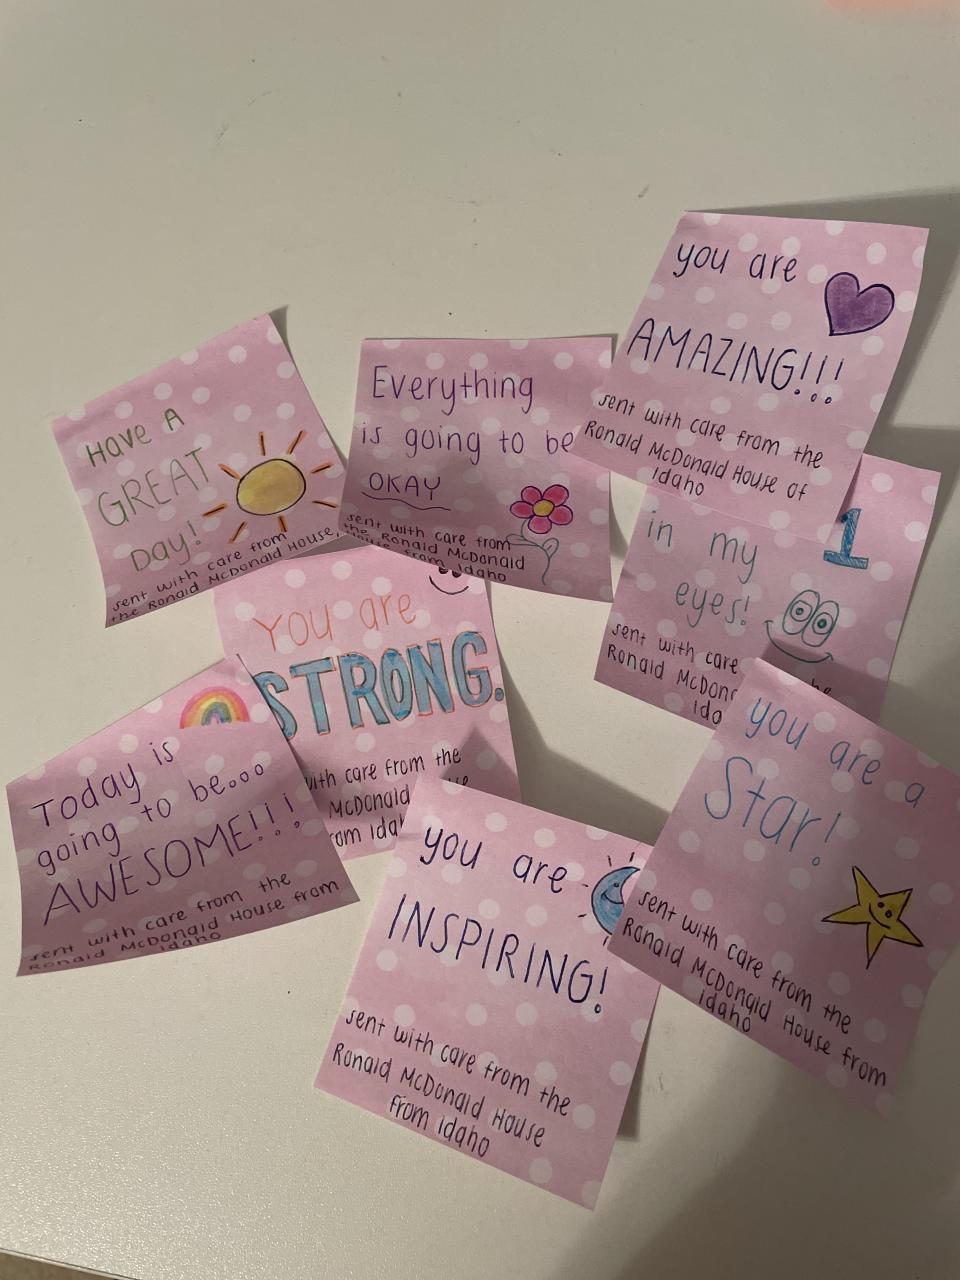 Have A
GREAT
Day!
sent with care from
the Ronald McDonald House,
Everything
is going to be
OKAY
sent with care from
the Ronald McDonald
House from Idaho
you are
AMAZING!!!
sent with care from the
Ronald McDonald House of
Idaho
1
in my
eyes!
sent with care
Ronald McDon
he
Ida
You are
STRONG.
with care from the
McDonald
use
rom Idah
Today is
going to be...
AWESOME!!!
sent with care from the
Ronald McDonald House from
Idaho
you are
INSPIRING!
sent with care from the
Ronald McDonald House
from Idaho
you are a
Star!
sent with care from the
Ronald McDonald House from
Idaho